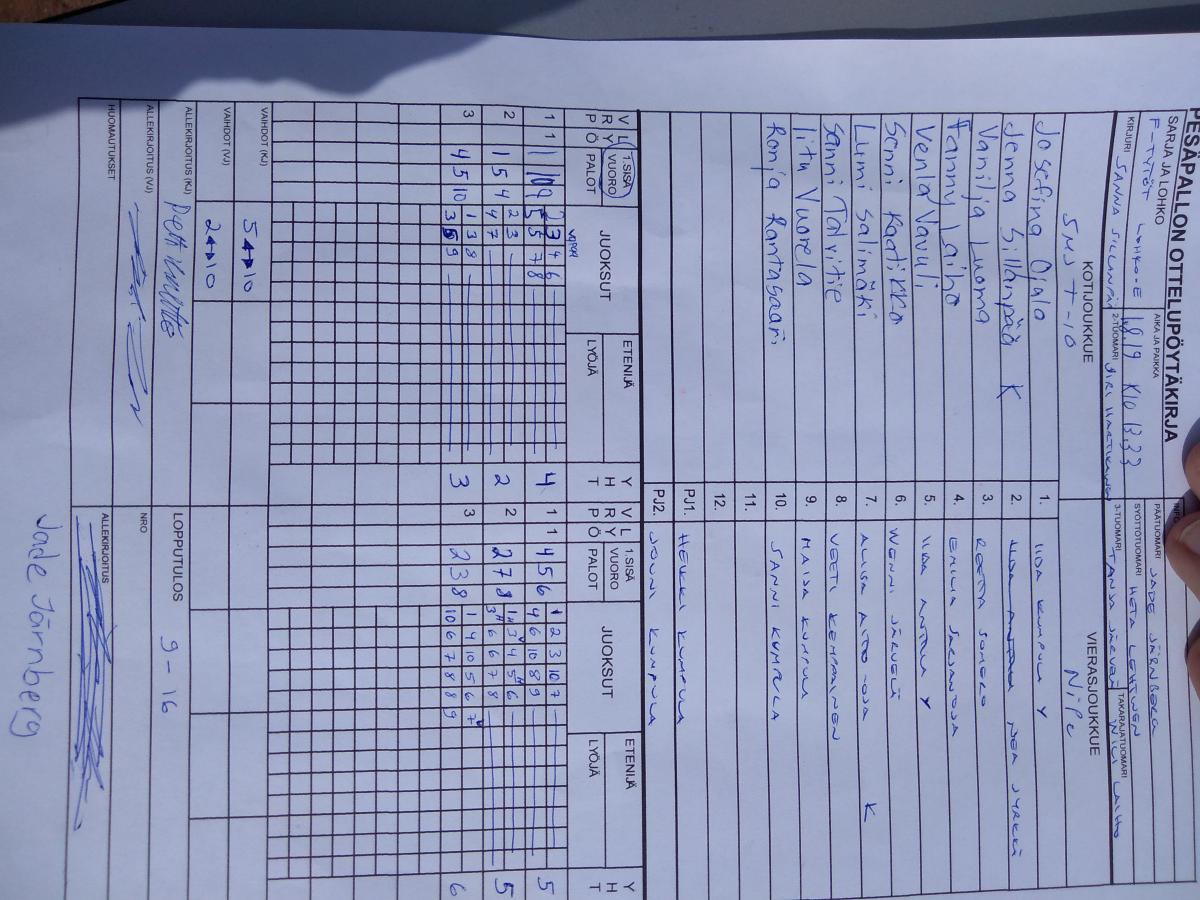 PESÄPALLON OTTELUPÖYTÄKIRJA
SARJA JA LOHKO
F-TYTÖT LOHKO-E
AIKA JA PAIKKA
18.19 K10 13,33
PÄÄTUOMARI JADE JÄRNBERG
SYÖTTÖTUOMARI HETA LEHTINEN
KIRJURI SANNA SILLANPÄÄ
2-TUOMARI
3-TUOMARI TANJA JÄRVEN
TAKARAJATUOMARI
KOTIJOUKKUE
VIERASJOUKKUE
SMJ T-10
NiPe
Josefina Ojala 1. IIDA KUMPULA Y
Jenna Sillanpää K 2. NEA JYRKKÄ
Vanilja Luoma 3. REETTA SOMERO
Fanny Laiho 4. EMILIA
Venla Vavuli 5. IIDA ANTILA Y
Senni Kaatikko 6. WENNI JÄRVELÄ
Lumi Salimäki 7. K
Sanni Talvitie 8. VEETI KEMPPAINEN
Iitu Vuorela 9. MAIJA KUMPULA
Ronja Rantasaari 10. SANNI KUMPULA
11.
12.
PJ1. HEIKKI KUMPULA
PJ2. JOUNI KUMPULA
V L R Y P Ö 1.SISÄ VUORO PALOT JUOKSUT ETENIJÄ LYÖJÄ Y H T V L R Y P Ö 1.SISÄ VUORO PALOT JUOKSUT ETENIJÄ LYÖJÄ Y H T
1 1 2 3 4 6 4 1 1 4 5 6 1 2 3 10 7 5
5 5 7 8 4 6 10 8 9
2 1 5 4 2 3 2 2 2 7 8 1 3 4 5 6 5
4 7 3 6 6 7 8
3 4 5 10 1 3 8 3 3 2 3 8 1 4 10 5 6 7 6
3 5 9 10 6 7 8 8 9
VAIHDOT (KJ)
5↔10
VAIHDOT (VJ)
2↔10
LOPPUTULOS 9-16
ALLEKIRJOITUS (KJ)
ALLEKIRJOITUS (VJ)
NRO
HUOMAUTUKSET
ALLEKIRJOITUS
Jade Järnberg